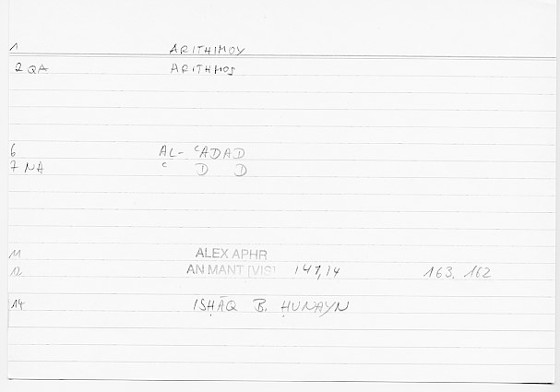 1 ARITHIMOY
2 QA ARITHMOS
6 AL- ʿADAD
7 NA ʿ D D
11 ALEX APHR
12 AN MANT [VIS] 147,14 163. 162
14 ISḤĀQ B. ḤUNAYN